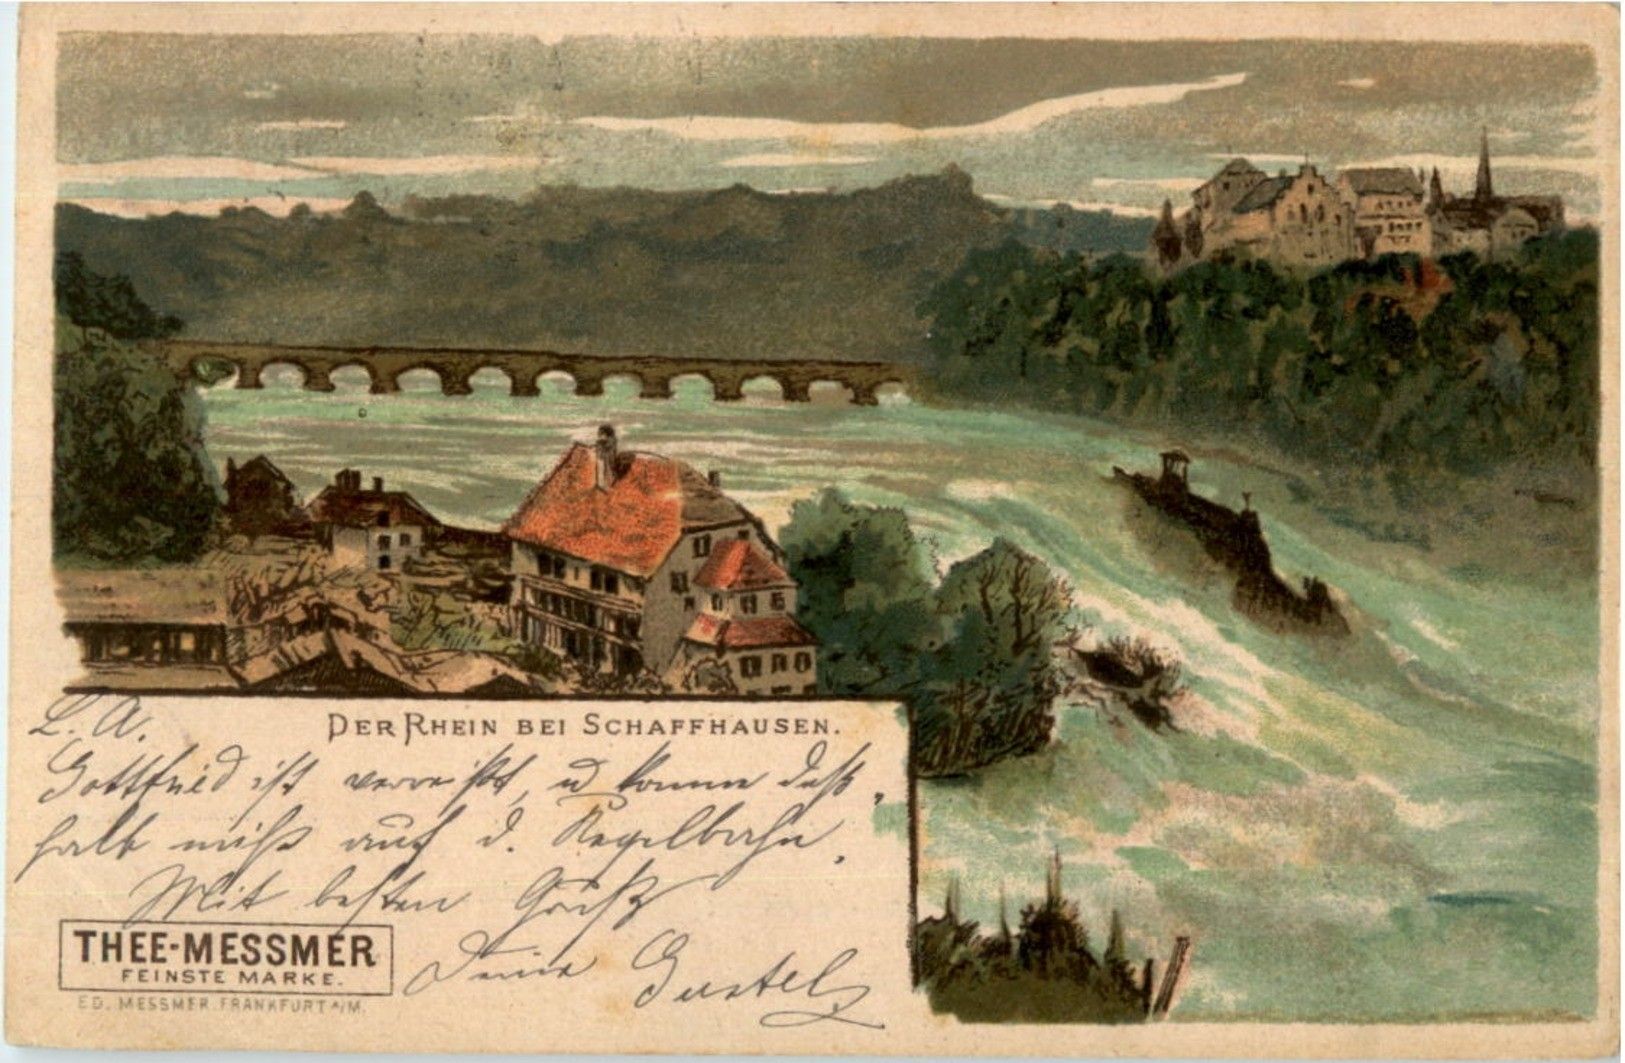 DER RHEIN BEI SCHAFFHAUSEN.
L. A.
Gottfried ist verreißt, u komme deß-
halb nicht auf d. Kegelbahn.
Mit besten Grüß
Deine Gustel
THEE-MESSMER
FEINSTE MARKE.
ED. MESSMER FRANKFURT A/M.